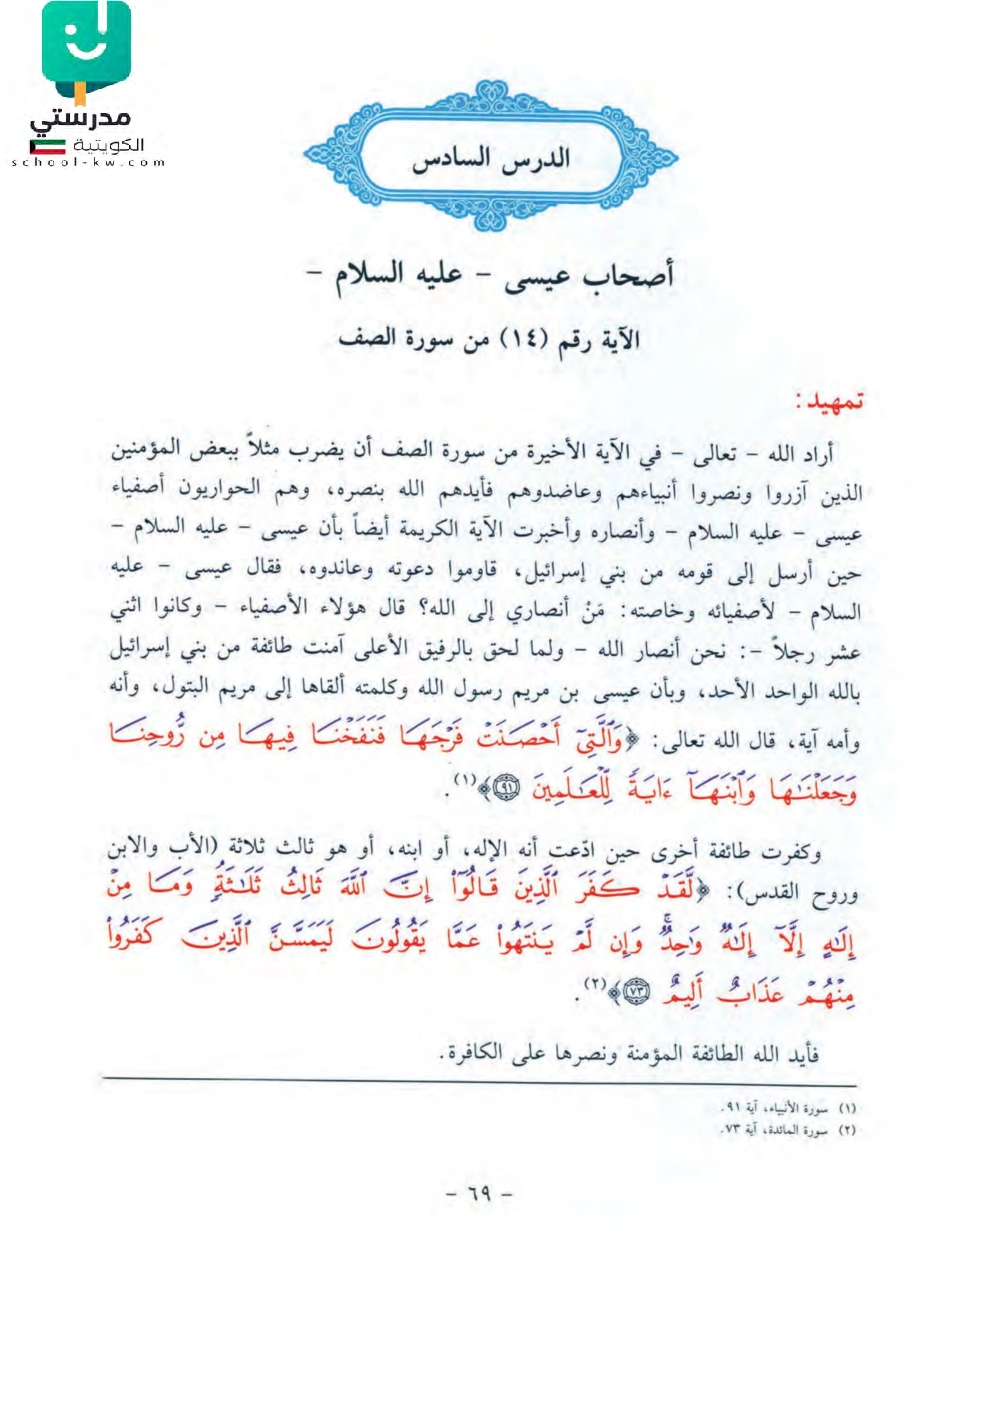 مدرستي
الكويتية
school-kw.com
الدرس السادس
أصحاب عيسى - عليه السلام -
الآية رقم (١٤) من سورة الصف
تمهيد:
أراد الله - تعالى - في الآية الأخيرة من سورة الصف أن يضرب مثلاً ببعض المؤمنين
الذين آزروا ونصروا أنبياءهم وعاضدوهم فأيدهم الله بنصره، وهم الحواريون أصفياء
عيسى - عليه السلام - وأنصاره وأخبرت الآية الكريمة أيضاً بأن عيسى - عليه السلام -
حين أرسل إلى قومه من بني إسرائيل، قاوموا دعوته وعاندوه، فقال عيسى - عليه
السلام - لأصفيائه وخاصته: مَنْ أنصاري إلى الله؟ قال هؤلاء الأصفياء - وكانوا اثني
عشر رجلاً -: نحن أنصار الله - ولما لحق بالرفيق الأعلى آمنت طائفة من بني إسرائيل
بالله الواحد الأحد، وبأن عيسى بن مريم رسول الله وكلمته ألقاها إلى مريم البتول، وأنه
وأمه آية، قال الله تعالى: ﴿وَٱلَّتِىٓ أَحْصَنَتْ فَرْجَهَا فَنَفَخْنَا فِيهَا مِن رُّوحِنَا
وَجَعَلْنَٰهَا وَٱبْنَهَآ ءَايَةً لِّلْعَٰلَمِينَ ٩١﴾(١).
وكفرت طائفة أخرى حين ادّعت أنه الإله، أو ابنه، أو هو ثالث ثلاثة (الأب والابن
وروح القدس): ﴿لَّقَدْ كَفَرَ ٱلَّذِينَ قَالُوٓا۟ إِنَّ ٱللَّهَ ثَالِثُ ثَلَٰثَةٍ وَمَا مِنْ
إِلَٰهٍ إِلَّآ إِلَٰهٌ وَٰحِدٌ ۚ وَإِن لَّمْ يَنتَهُوا۟ عَمَّا يَقُولُونَ لَيَمَسَّنَّ ٱلَّذِينَ كَفَرُوا۟
مِنْهُمْ عَذَابٌ أَلِيمٌ ٧٣﴾(٢).
فأيد الله الطائفة المؤمنة ونصرها على الكافرة.
(١) سورة الأنبياء، آية ٩١.
(٢) سورة المائدة، آية ٧٣.
- ٦٩ -